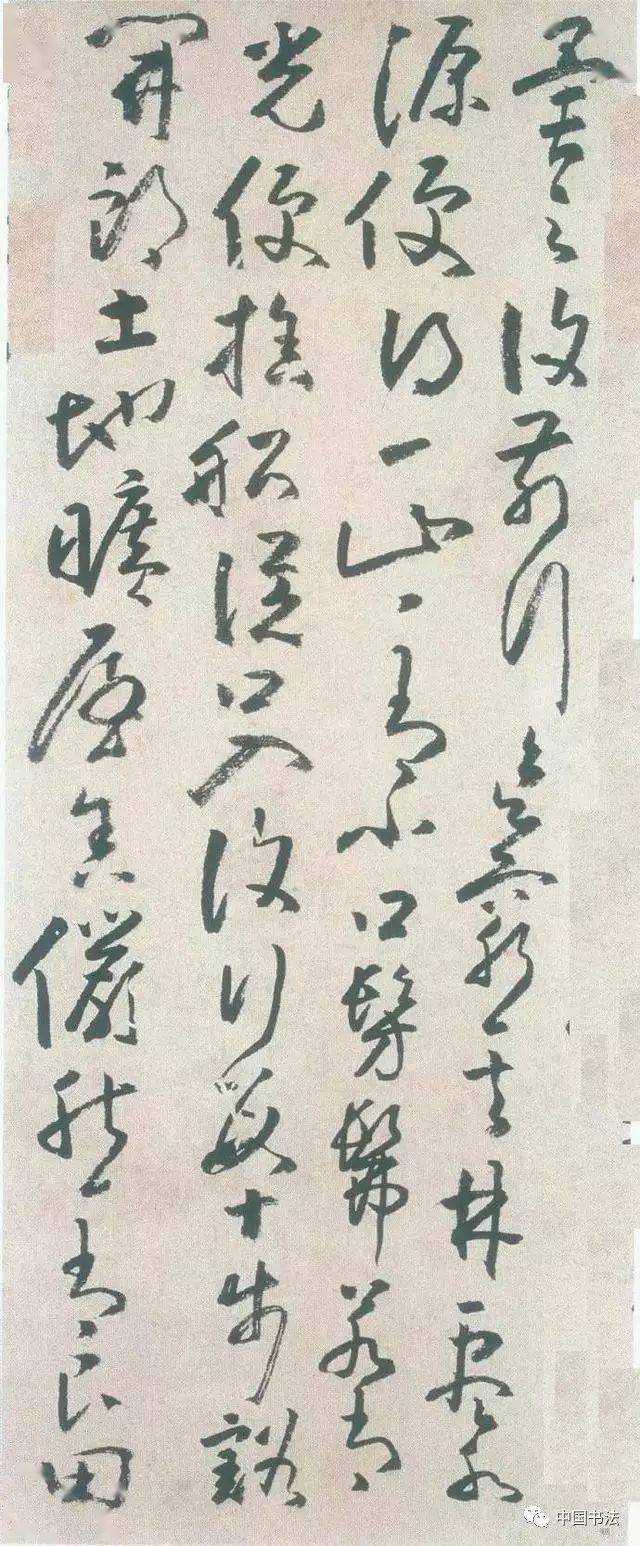 異之復前行欲窮其林盡水
源便得一山々有小口髣髴若有
光便捨船從口入復行數十步豁
開朗土地曠屋舍儼然有良田
中国书法